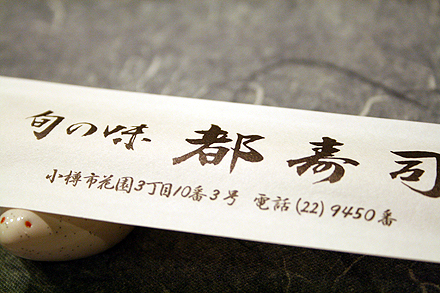 旬の味 都寿司
小樽市花園3丁目10番3号 電話(22)9450番